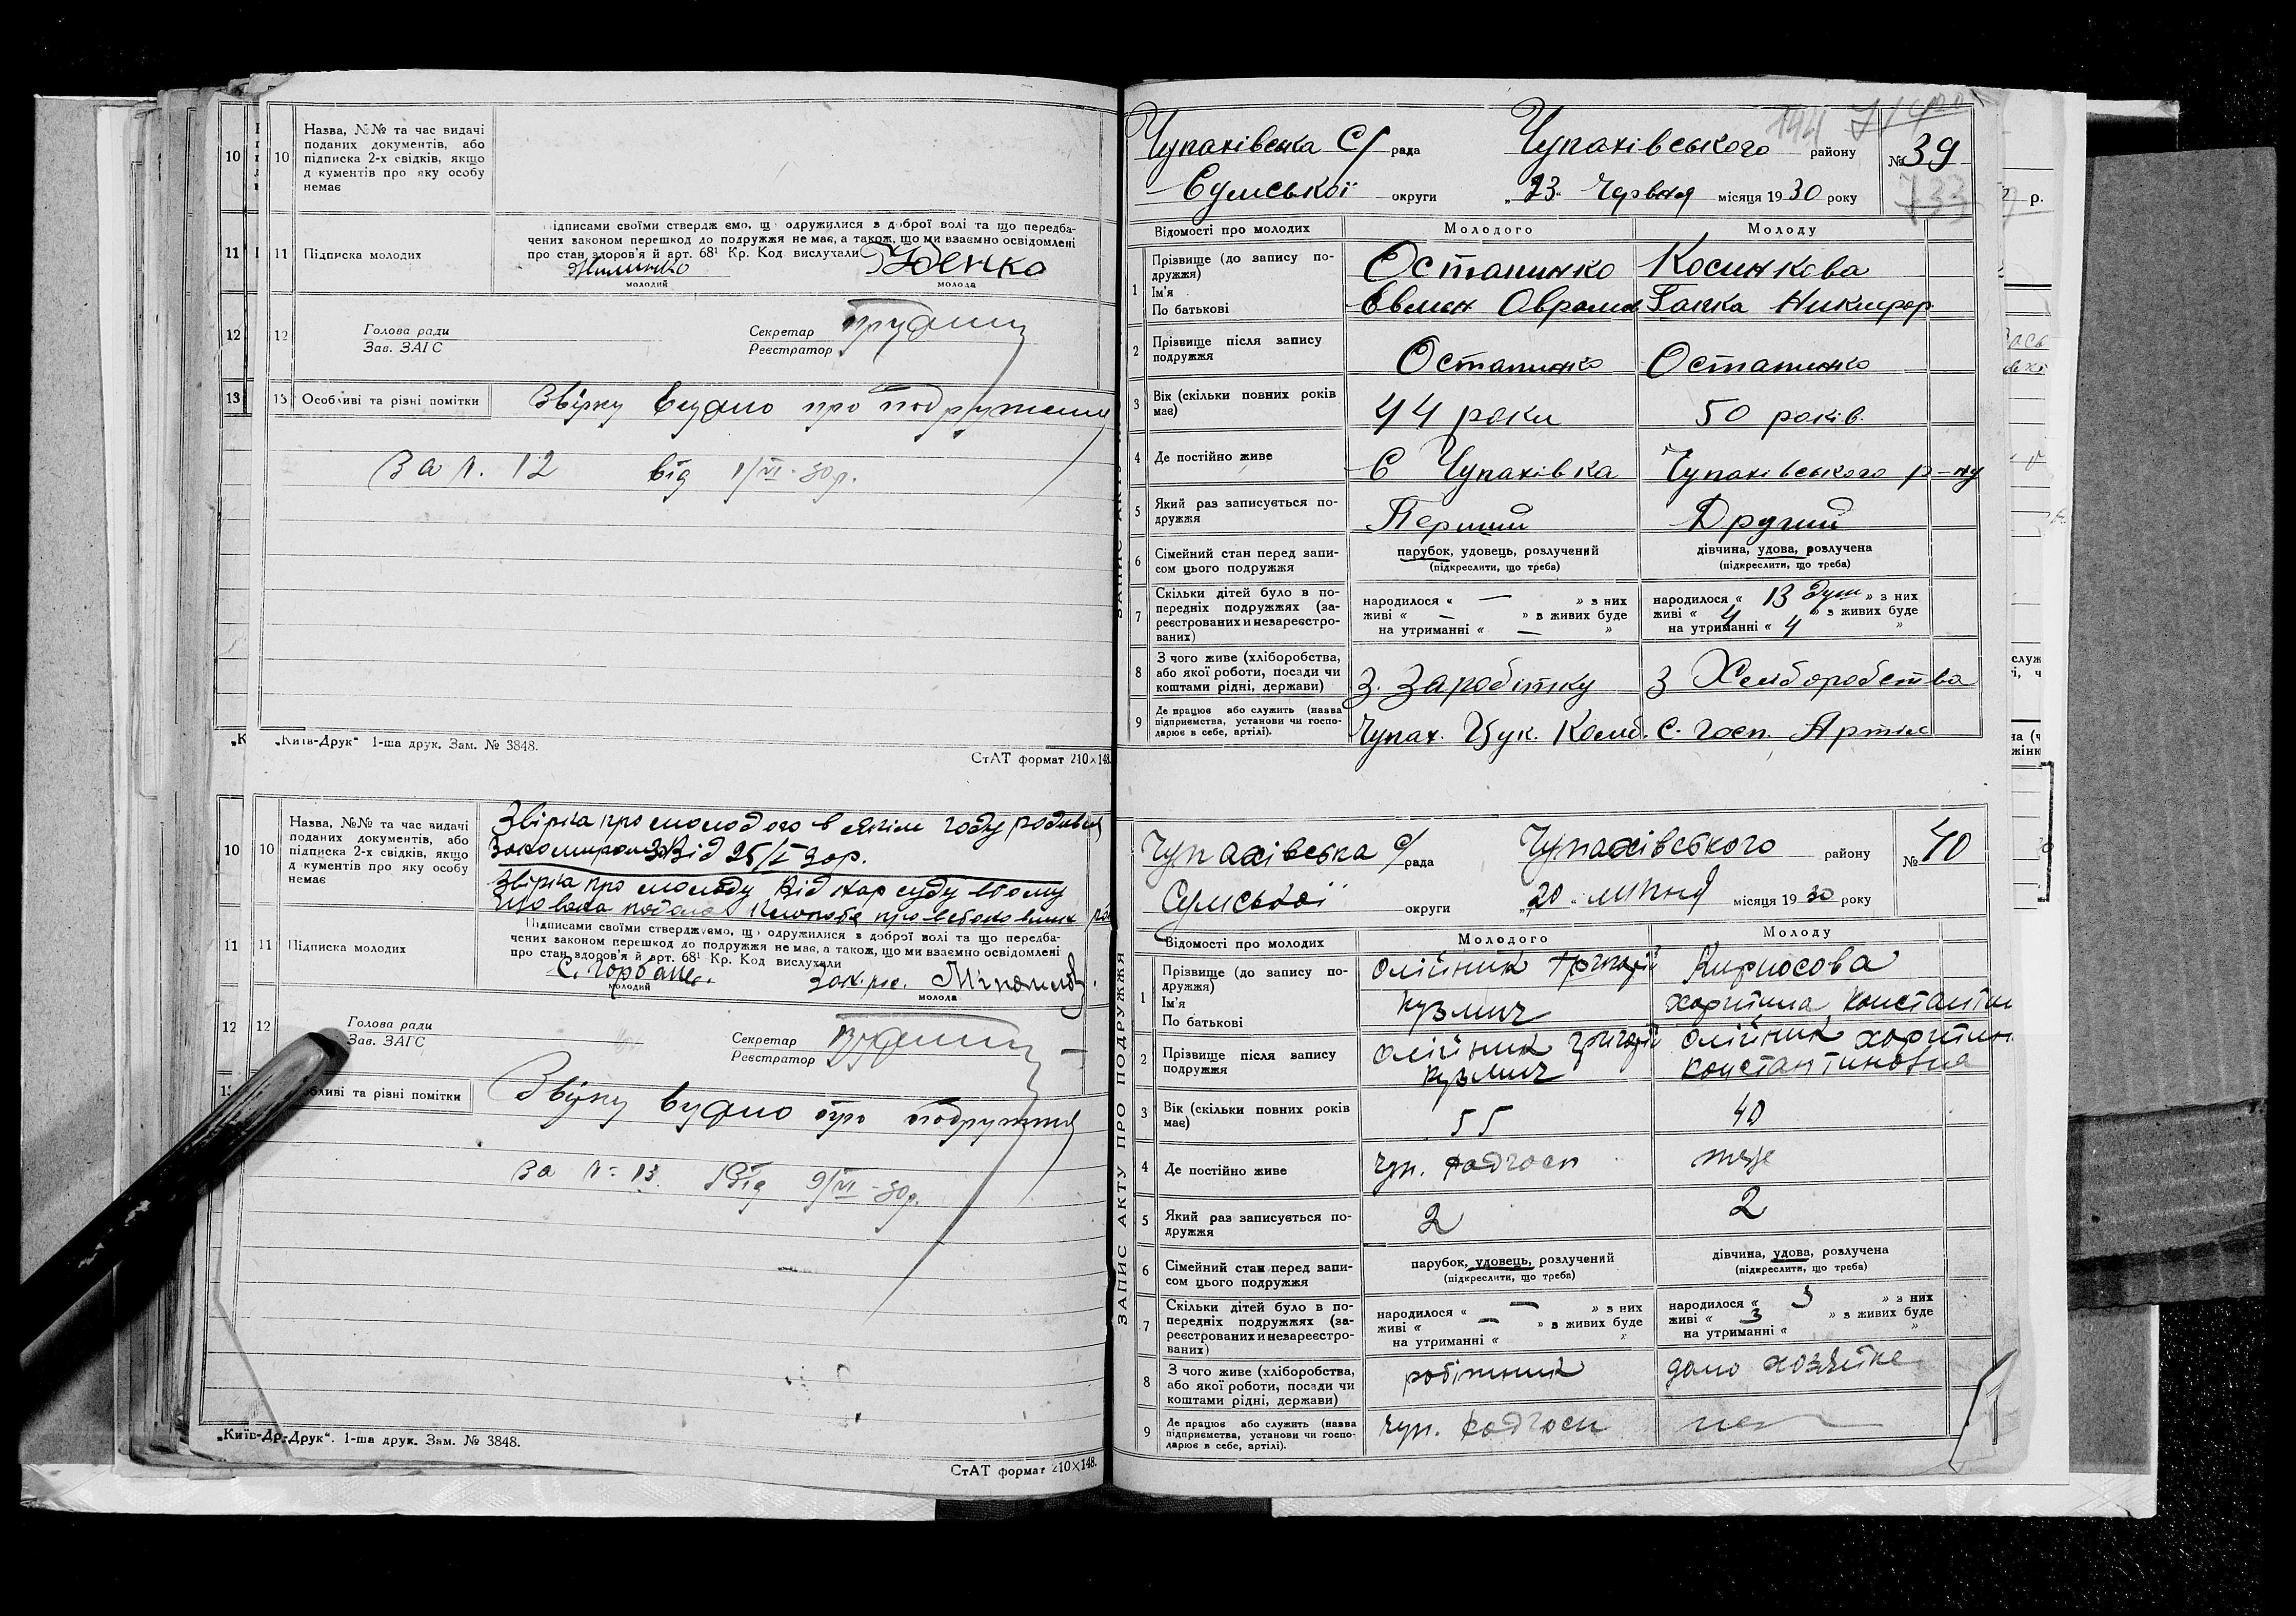 10
10
Назва, №№ та час видачі
поданих документів, або
підписка 2-х свідків, якщо
д кументів про яку особу
немає
11
11
Підписка молодих
ідписами своїми ствердж ємо, щ одружилися з доброї волі та що передба-
чених законом перешкод до подружжя не має, а також, що ми взаємно освідомлені
про стан здоров'я й арт. 68¹ Кр. Код вислухали
молодий
молода
12
12
Голова ради
Зав. ЗАГС
Секретар
Реєстратор
13
13
Особливі та різні помітки
Звірку видано про подружжя
За №. 12 від 1/VI-30р.
„Київ-Друк“ 1-ша друк. Зам. № 3848.
СтАТ формат 210×148.
10
10
Назва, №№ та час видачі
поданих документів, або
підписка 2-х свідків, якщо
д кументів про яку особу
немає
Звірка про молодого в якім году родився
Від 25/I 30р.
Звірка про молоду Від нар суду
що вона подала
11
11
Підписка молодих
Підписами своїми стверджуємо, що одружилися з доброї волі та що передба-
чених законом перешкод до подружжя не має, а також, що ми взаємно освідомлені
про стан здоров'я й арт. 68¹ Кр. Код вислухали
С. Горбань.
молодий
молода
12
12
Голова ради
Зав. ЗАГС
Секретар
Реєстратор
13
бливі та різні помітки
Звірку видано про подружжя
за №: 13. Від 9/VI-30р.
„Київ-Др-Друк“. 1-ша друк. Зам. № 3848.
СтАТ формат 210×148.
144
Чупахівська С/рада Чупахівського району № 39
733
Сумської округи „23“ Червня місяця 1930 року
Відомості про молодих Молодого Молоду
1 Прізвище (до запису по-
дружжя)
Ім'я
По батькові
Остапинко Косинкова
Евмен Оврамов Ганка Никифор
2 Прізвище після запису
подружжя
Остапинко Остапинко
3 Вік (скільки повних років
має)
44 роки 50 років.
4 Де постійно живе С Чупахівка Чупахівського р-ну
5 Який раз записується по-
дружжя
Перший Другий
6 Сімейний стан перед запи-
сом цього подружжя
парубок, удовець, розлучений
(підкреслити, що треба)
дівчина, удова, розлучена
(підкреслити, що треба)
7 Скільки дітей було в по-
передніх подружжях (за-
реєстрованих и незареєстро-
ваних)
народилося « — » з них
живі « — » з живих буде
на утриманні « — »
народилося « 13 душ » з них
живі « 4 » з живих буде
на утриманні « 4 »
8 З чого живе (хліборобства,
або якої роботи, посади чи
коштами рідні, держави)
З. Заробітку З Хлиборобства
9 Де працює або служить (назва
підприємства, установи чи госпо-
дарює в себе, артілі).
Чупах. Цук. Комб. С. госп. Артіл
ЗАПИС АКТУ ПРО ПОДРУЖЖЯ
Чупахівська С/рада Чупахівського району № 40
Сумської округи „20“ липня місяця 1930 року
Відомості про молодих Молодого Молоду
1 Прізвище (до запису по-
дружжя)
Ім'я
По батькові
Олійник Григорій Кирносова
Кузмич харитина Константин
2 Прізвище після запису
подружжя
Олійник Григорій Олійник харитин
Кузмич Константиновна
3 Вік (скільки повних років
має)
55 40
4 Де постійно живе чуп. радгосп теж
5 Який раз записується по-
дружжя
2 2
6 Сімейний стан перед запи-
сом цього подружжя
парубок, удовець, розлучений
(підкреслити, що треба)
дівчина, удова, розлучена
(підкреслити, що треба)
7 Скільки дітей було в по-
передніх подружжях (за-
реєстрованих и незареєстро-
ваних)
народилося « — » з них
живі « — » з живих буде
на утриманні « »
народилося « 3 » з них
живі « 3 » з живих буде
на утриманні « »
8 З чого живе (хліборобства,
або якої роботи, посади чи
коштами рідні, держави)
робітник домо хозяйке
9 Де працює або служить (назва
підприємства, установи чи госпо-
дарює в себе, артілі).
чуп. радгосп